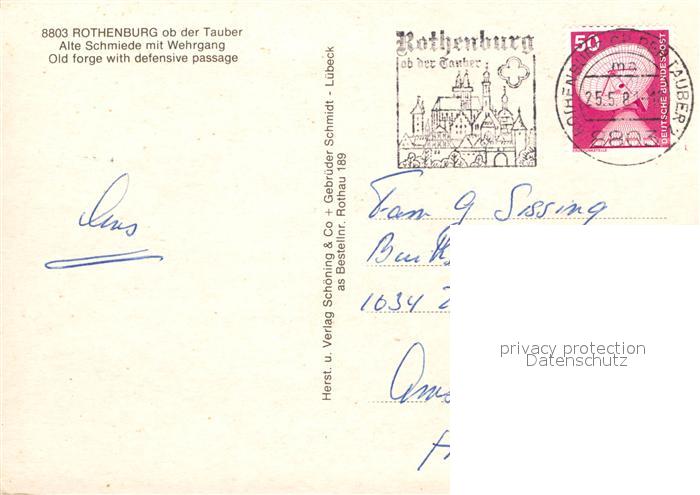 8803 ROTHENBURG ob der Tauber
Alte Schmiede mit Wehrgang
Old forge with defensive passage
Rothenburg
ob der Tauber
50
DEUTSCHE BUNDESPOST
ROTHENBURG OB DER TAUBER
ma
25.5.8
8803
Herst. u. Verlag Schöning & Co + Gebrüder Schmidt - Lübeck
as Bestellnr. Rothau 189
Fam G Sissing
1034
privacy protection
Datenschutz